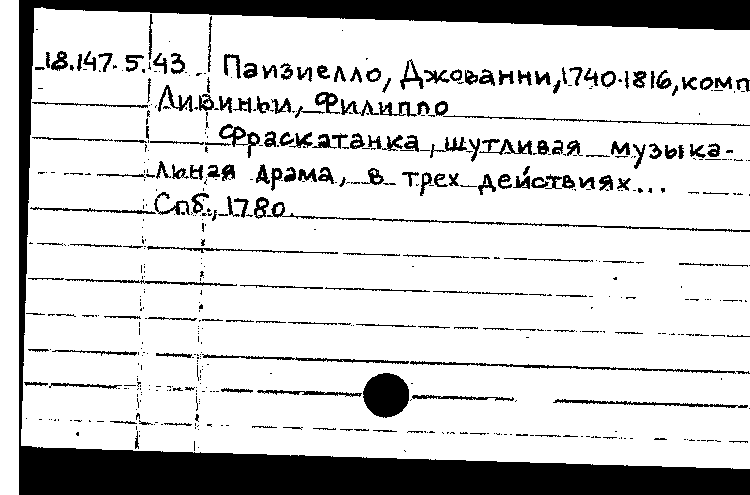 18.147.5.43 Паизиелло, Джованни, 1740-1816, комп
Ливиньи, Филиппо
Фраскатанка, шутливая музыка-
льная драма, в трех действиях...
Спб., 1780.